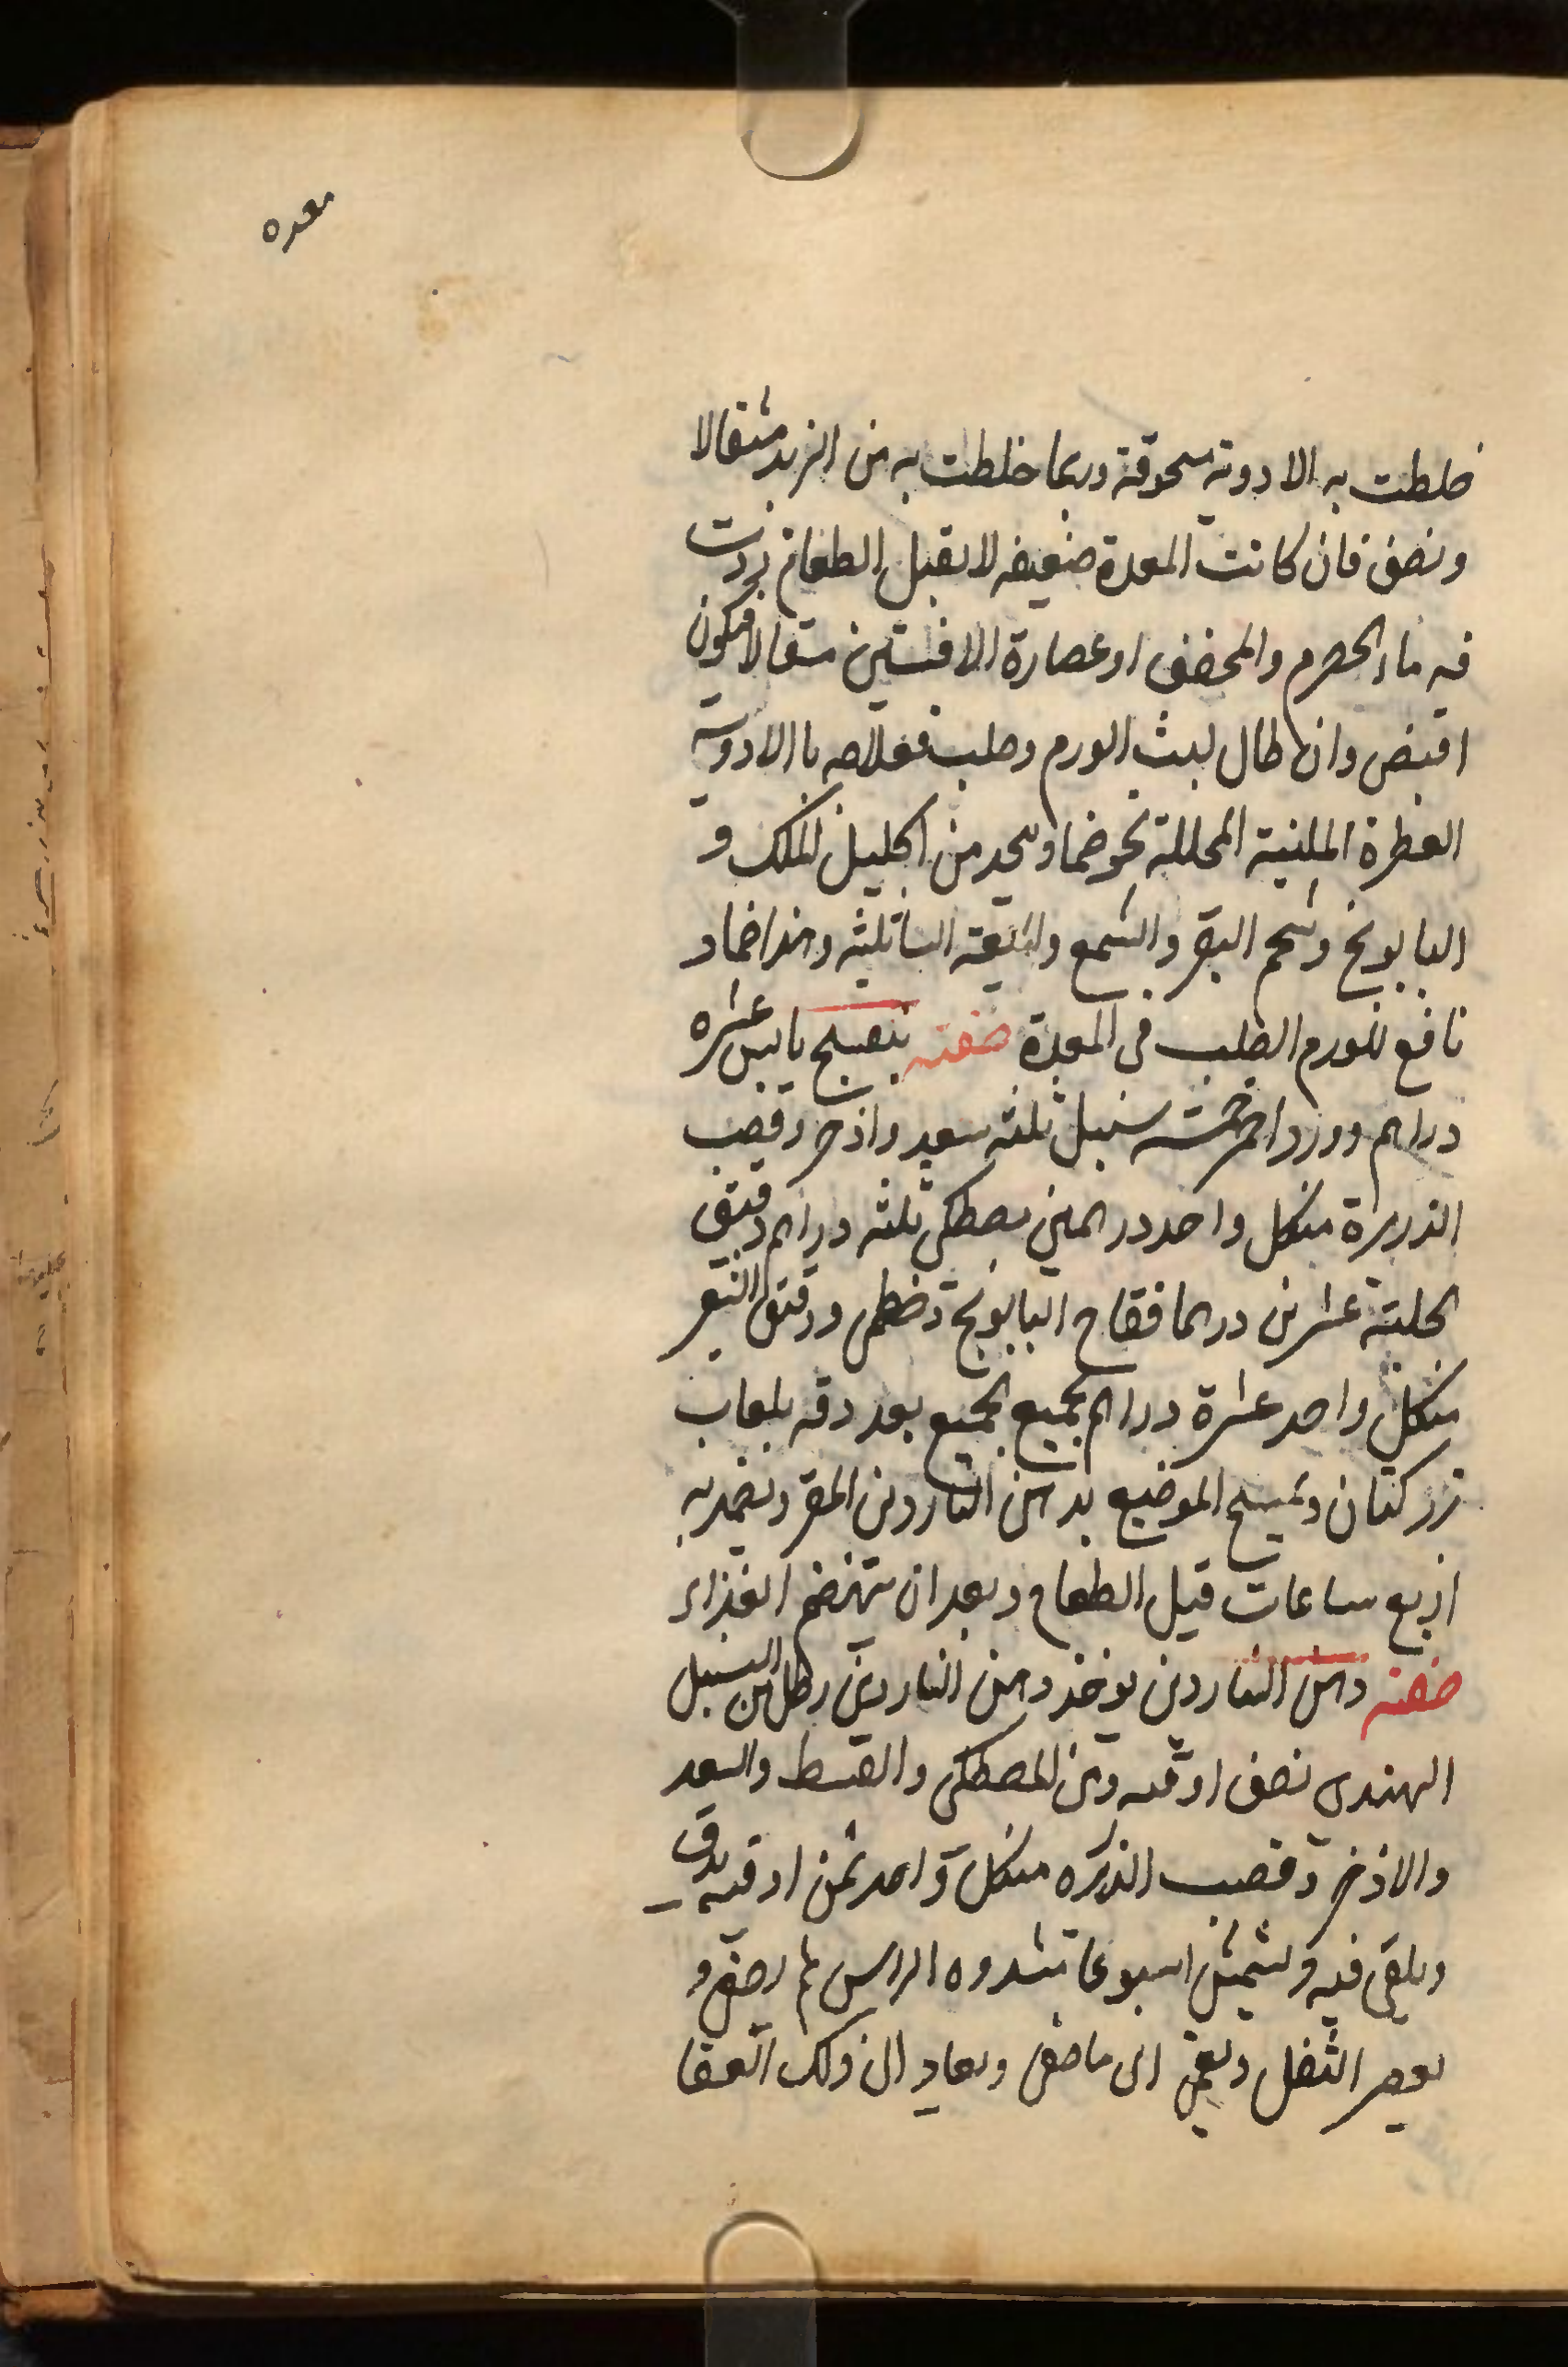 معده
خلطت به الادوية مسحوقة وربما خلطت به من الزبد مثقالا
ونصف فان كانت المعدة ضعيفه لا تقبل الطعام زدت
فيه ماء الحصرم والمحضض او عصارة الافسنتين مثقالا فيكون
اقبض وان طال لبث الورم وصلب فعلاجه باالادوية
العطرة الملينة المحللة نحو ضماد يتخذ من اكليل الملك و
البابونج وشحم البقر والشمع والميعة السائلة وهذا ضماد
نافع للورم الصلب فى المعدة صفته بنفسج يابس عشره
دراهم وورد احمر خمسه سنبل ثلثه سعد واذخر وقصب
الذريرة من كل واحد درهمين مصطكى ثلثه دراهم دقيق
الحلبة عشرين درهما فقاح البابونج وخطمى ودقيق الشعير
من كل واحد عشرة دراهم يجمع الجميع بعد دقه بلعاب
بزر كتان ويمسح الموضع بدهن الناردين ويضمد به
اربع ساعات قبل الطعام وبعد ان ينهضم الغذاء
صفته دهن الناردين يوخذ دهن الناردين رطل ومن السنبل
الهندى نصف اوقيه ومن المصطكى والقسط والسعد
والاذخر وقصب الذريره من كل واحد ثمن اوقيه يدق
ويلقى فيه ويشمس اسبوعا مشدوه الراس ثم يصفى و
يعصر الثفل ويضم الى ما صفى ويعاد الى ذلك العقا